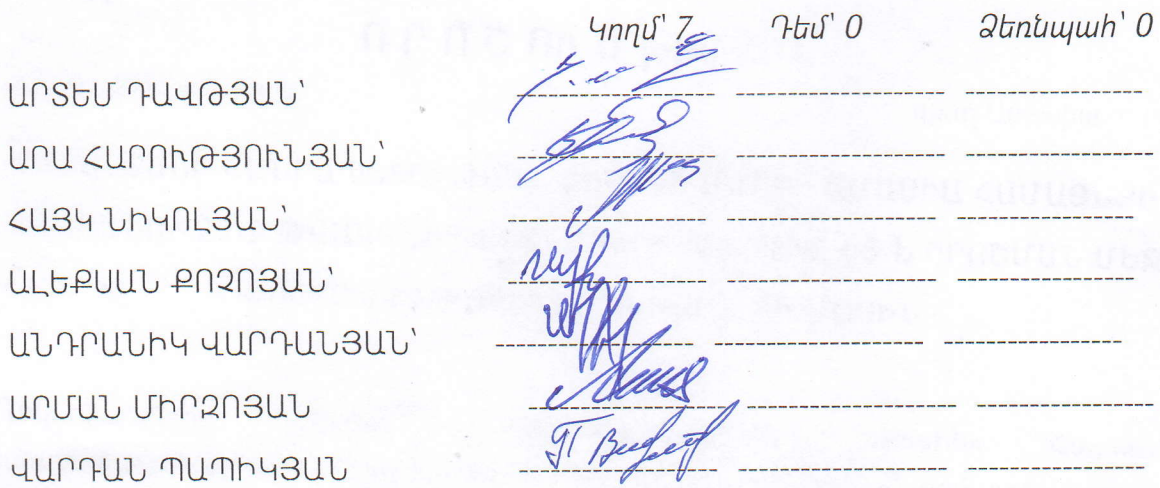 Կողմ՝ 7 Դեմ՝ 0 Ձեռնպահ՝ 0
ԱՐՏԵՄ ԴԱՎԹՅԱՆ՝
ԱՐԱ ՀԱՐՈՒԹՅՈՒՆՅԱՆ՝
ՀԱՅԿ ՆԻԿՈԼՅԱՆ՝
ԱԼԵՔՍԱՆ ՔՈՉՈՅԱՆ՝
ԱՆԴՐԱՆԻԿ ՎԱՐԴԱՆՅԱՆ՝
ԱՐՄԱՆ ՄԻՐԶՈՅԱՆ
ՎԱՐԴԱՆ ՊԱՊԻԿՅԱՆ